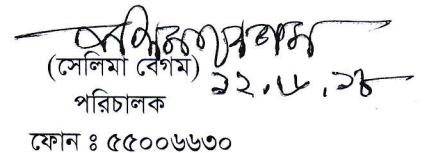 (সেলিমা বেগম)
১২.৮.১৮
পরিচালক
ফোন ঃ ৫৫০০৬৬৩০